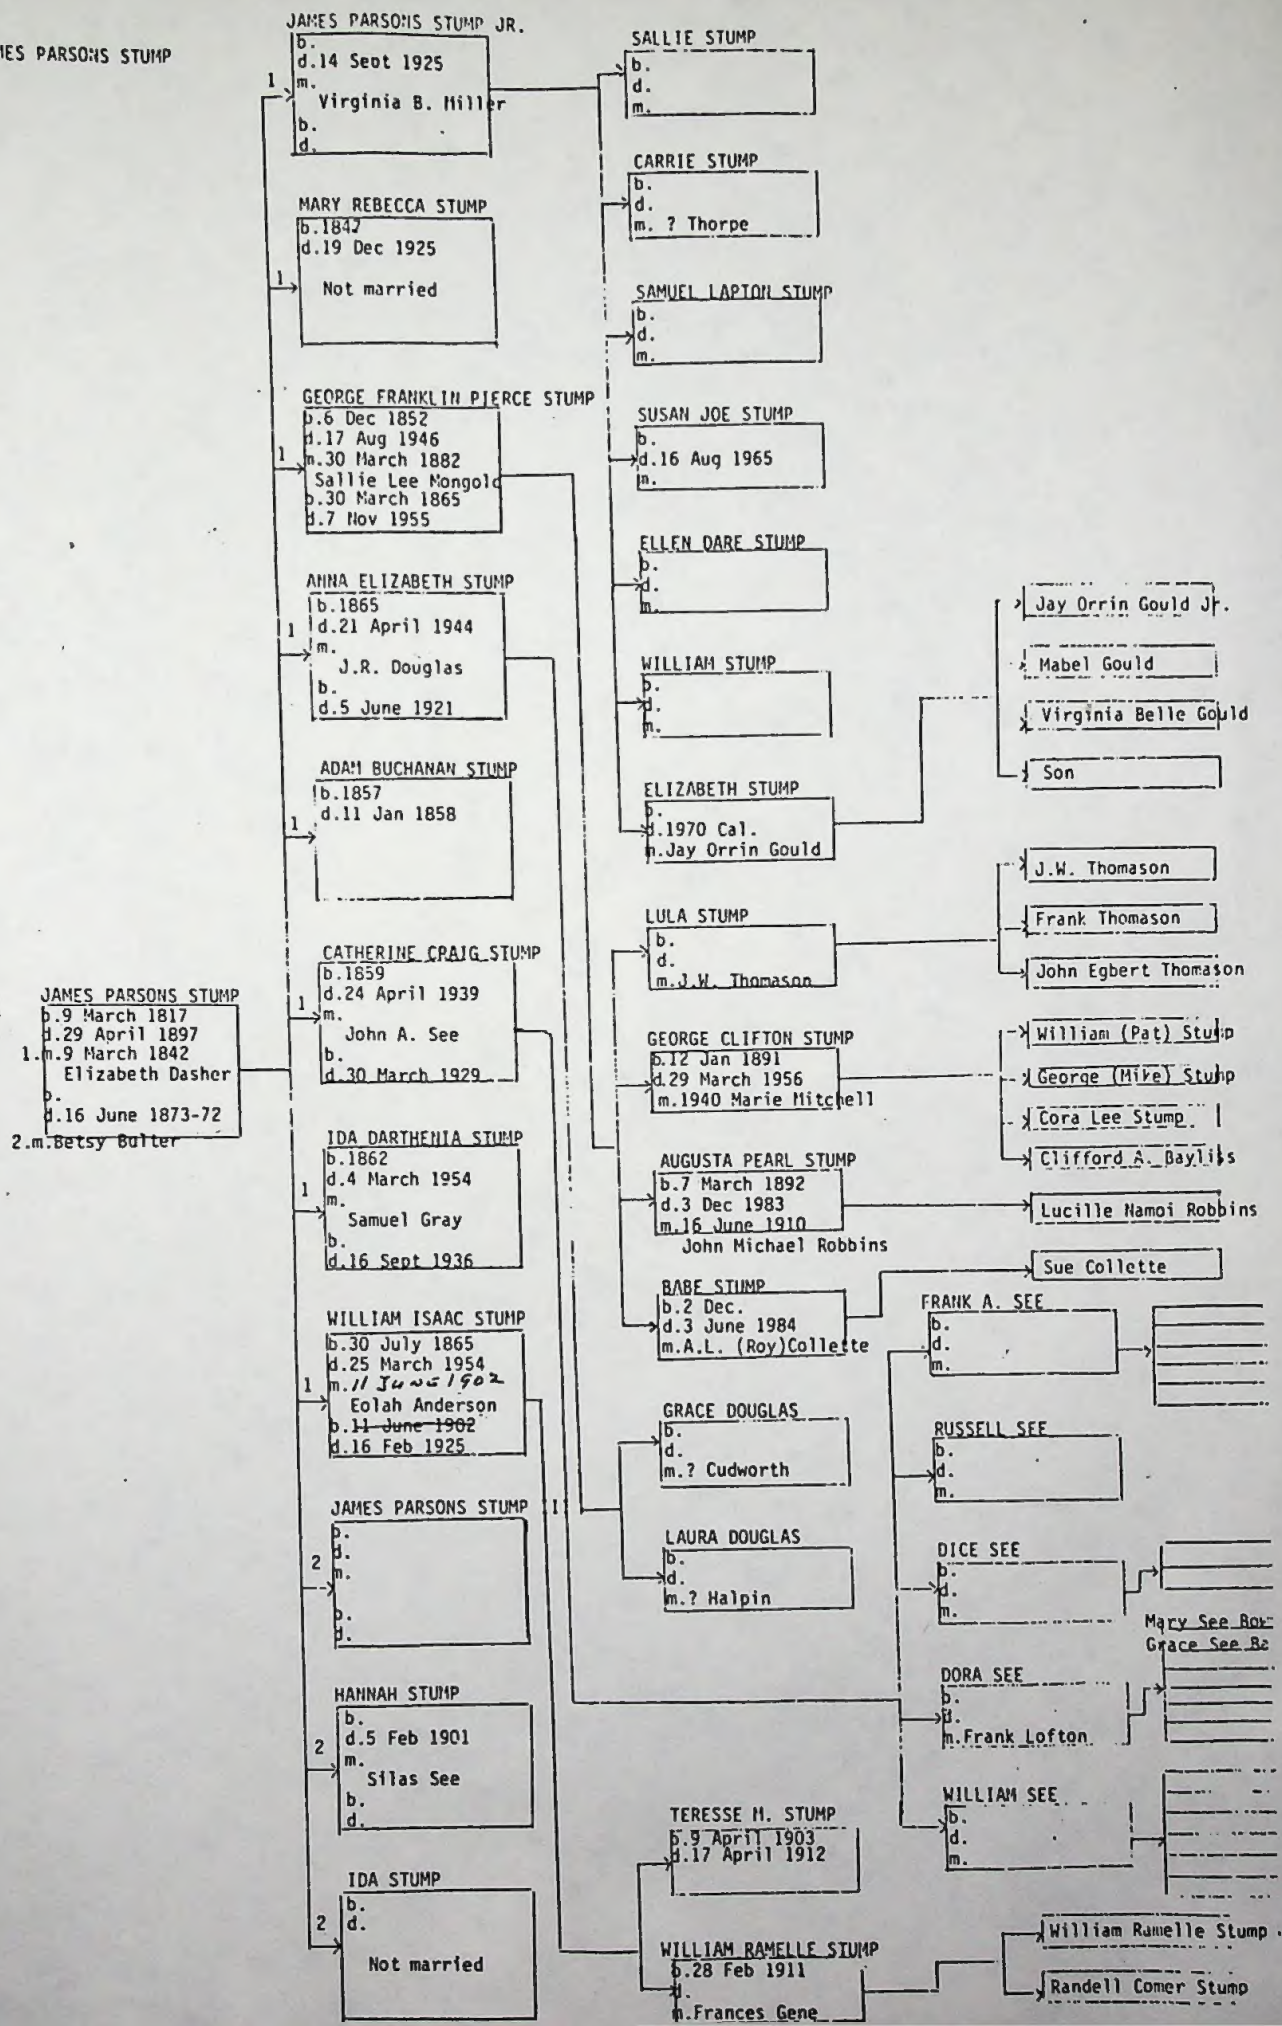 MES PARSONS STUMP
JAMES PARSONS STUMP
b.9 March 1817
d.29 April 1897
1.m.9 March 1842
Elizabeth Dasher
b.
d.16 June 1873-72
2.m.Betsy Bulter
JAMES PARSONS STUMP JR.
1
b.
d.14 Sept 1925
m.
Virginia B. Miller
b.
d.
MARY REBECCA STUMP
1
b.1847
d.19 Dec 1925
Not married
GEORGE FRANKLIN PIERCE STUMP
1
b.6 Dec 1852
d.17 Aug 1946
m.30 March 1882
Sallie Lee Mongold
b.30 March 1865
d.7 Nov 1955
ANNA ELIZABETH STUMP
1
b.1865
d.21 April 1944
m.
J.R. Douglas
b.
d.5 June 1921
ADAM BUCHANAN STUMP
1
b.1857
d.11 Jan 1858
CATHERINE CRAIG STUMP
1
b.1859
d.24 April 1939
m.
John A. See
b.
d.30 March 1929
IDA DARTHENIA STUMP
1
b.1862
d.4 March 1954
m.
Samuel Gray
b.
d.16 Sept 1936
WILLIAM ISAAC STUMP
1
b.30 July 1865
d.25 March 1954
m.11 JUNE 1902
Eolah Anderson
b.11 June 1902
d.16 Feb 1925
JAMES PARSONS STUMP II
2
b.
d.
m.
b.
d.
HANNAH STUMP
2
b.
d.5 Feb 1901
m.
Silas See
b.
d.
IDA STUMP
2
b.
d.
Not married
SALLIE STUMP
b.
d.
m.
CARRIE STUMP
b.
d.
m. ? Thorpe
SAMUEL LAPTON STUMP
b.
d.
m.
SUSAN JOE STUMP
b.
d.16 Aug 1965
m.
ELLEN DARE STUMP
b.
d.
m.
WILLIAM STUMP
b.
d.
m.
ELIZABETH STUMP
b.
d.1970 Cal.
m.Jay Orrin Gould
LULA STUMP
b.
d.
m.J.W. Thomason
GEORGE CLIFTON STUMP
b.12 Jan 1891
d.29 March 1956
m.1940 Marie Mitchell
AUGUSTA PEARL STUMP
b.7 March 1892
d.3 Dec 1983
m.16 June 1910
John Michael Robbins
BABE STUMP
b.2 Dec.
d.3 June 1984
m.A.L. (Roy)Collette
GRACE DOUGLAS
b.
d.
m.? Cudworth
LAURA DOUGLAS
b.
d.
m.? Halpin
TERESSE M. STUMP
b.9 April 1903
d.17 April 1912
WILLIAM RAMELLE STUMP
b.28 Feb 1911
d.
m.Frances Gene
Jay Orrin Gould Jr.
Mabel Gould
Virginia Belle Gould
Son
J.W. Thomason
Frank Thomason
John Egbert Thomason
William (Pat) Stump
George (Mike) Stump
Cora Lee Stump
Clifford A. Bayliss
Lucille Namoi Robbins
Sue Collette
FRANK A. SEE
b.
d.
m.
RUSSELL SEE
b.
d.
m.
DICE SEE
b.
d.
m.
Mary See
Grace See
DORA SEE
b.
d.
m.Frank Lofton
WILLIAM SEE
b.
d.
m.
William Ramelle Stump
Randell Comer Stump